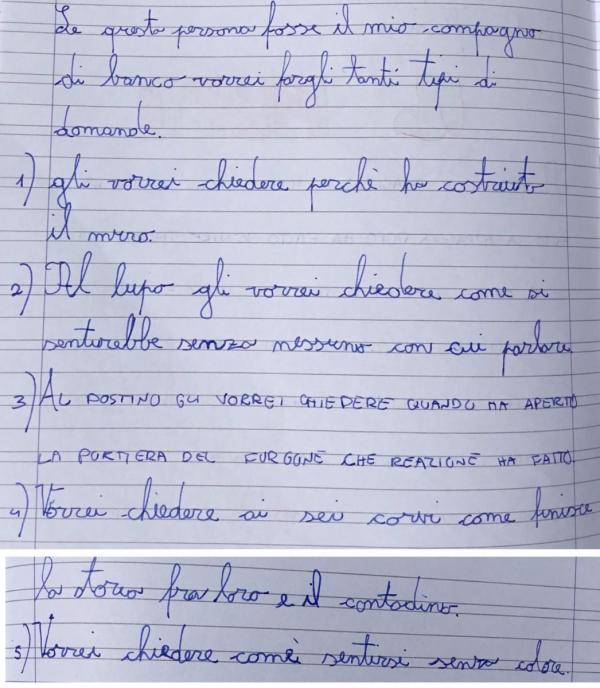 Se questa persona fosse il mio compagno
di banco vorrei fargli tanti tipi di
domande.
1) gli vorrei chiedere perchè ha costruito
il muro.
2) Al lupo gli vorrei chiedere come si
sentirebbe senza nessuno con cui parlare
3) AL POSTINO GLI VORREI CHIEDERE QUANDO HA APERTO
LA PORTIERA DEL FURGONE CHE REAZIONE HA FATTO.
4) Vorrei chiedere ai sei corvi come finisce
la storia fra loro e il contadino.
5) Vorrei chiedere com'è sentirsi senza colore.